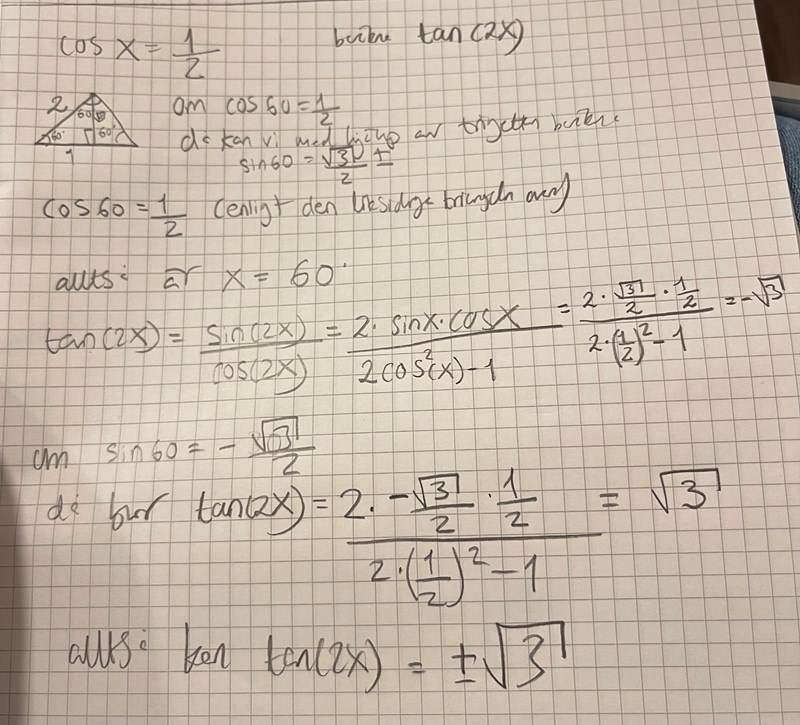 cos x = 1/2 beräkna tan(2x)
2 60° 60° 60° 1
om cos 60 = 1/2
då kan vi med hjälp av trigettan beräkna
sin 60 = √3/2 ±
cos 60 = 1/2 (enligt den liksidiga triangeln ovan)
alltså är x = 60°
tan(2x) = sin(2x)/cos(2x) = 2·sinx·cosx/2cos²(x)-1 = 2·√3/2·1/2/2·(1/2)²-1 = -√3
om sin 60 = -√3/2
då blir tan(2x) = 2·-√3/2·1/2/2·(1/2)²-1 = √3
alltså kan tan(2x) = ±√3